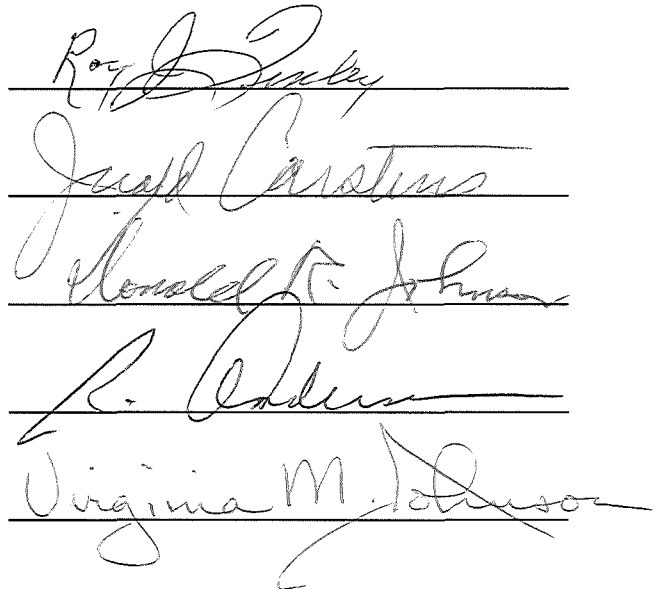 Roy J. Finley
Carstens
Ronald R. Johnson
R. Anderson
Virginia M. Johnson